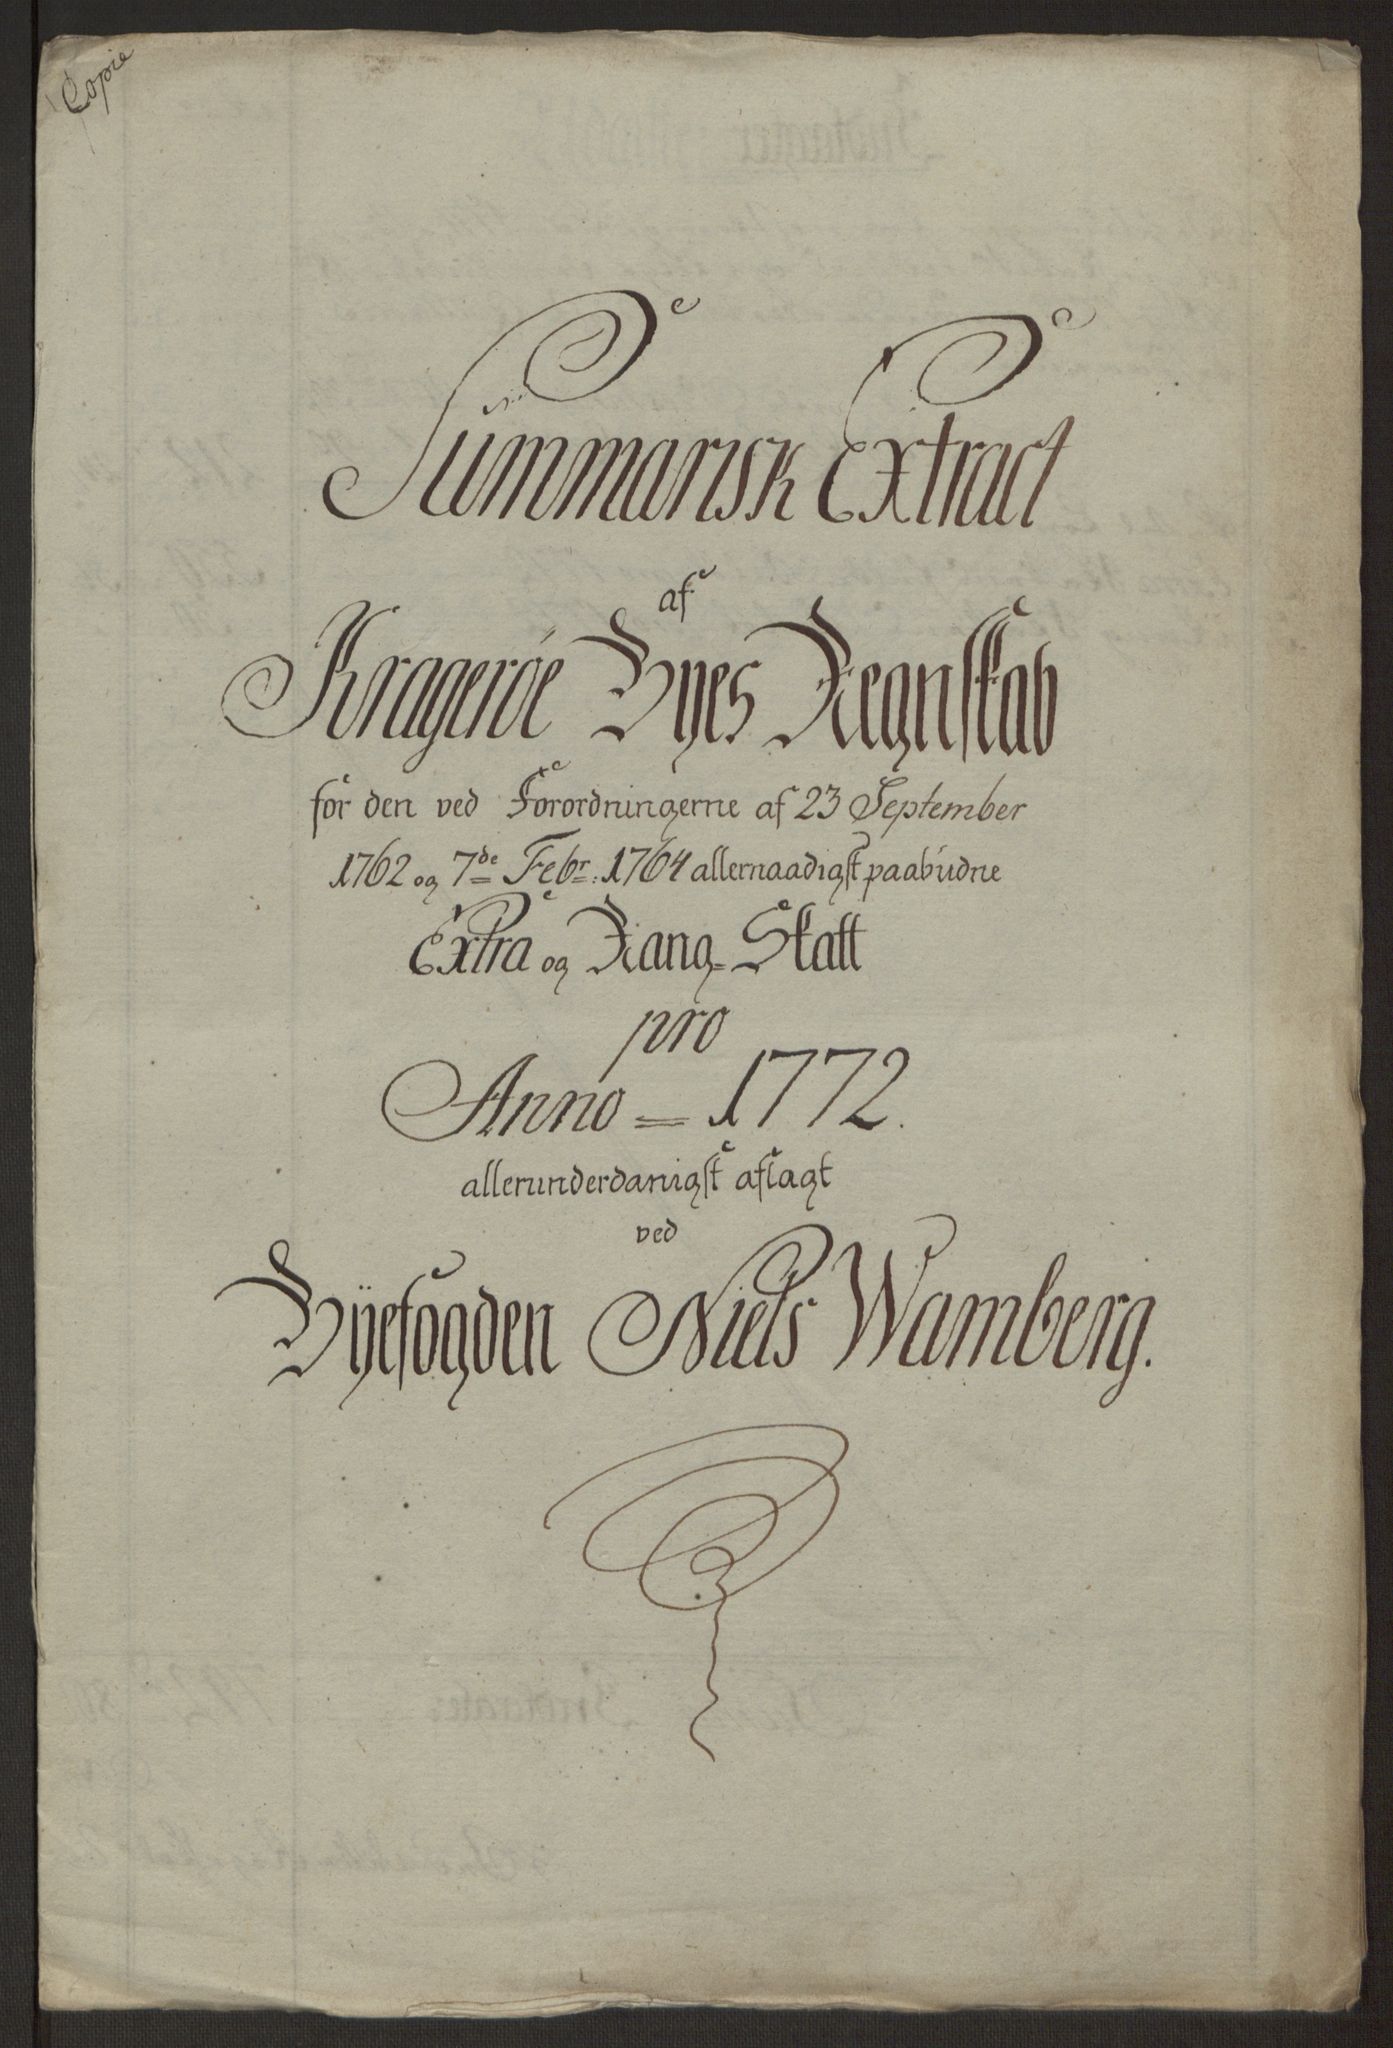 Copie
Summarisk Extract
af
Kragerøe Byes Regnskab
for den ved Forordningerne af 23 September
1762 og 7de Febr: 1764 allernaadigst paabudne
Extra og Rang-Skatt
pro
Anno = 1772.
allerunderdanigst aflagt
ved
Byefogden Niels Wamberg.